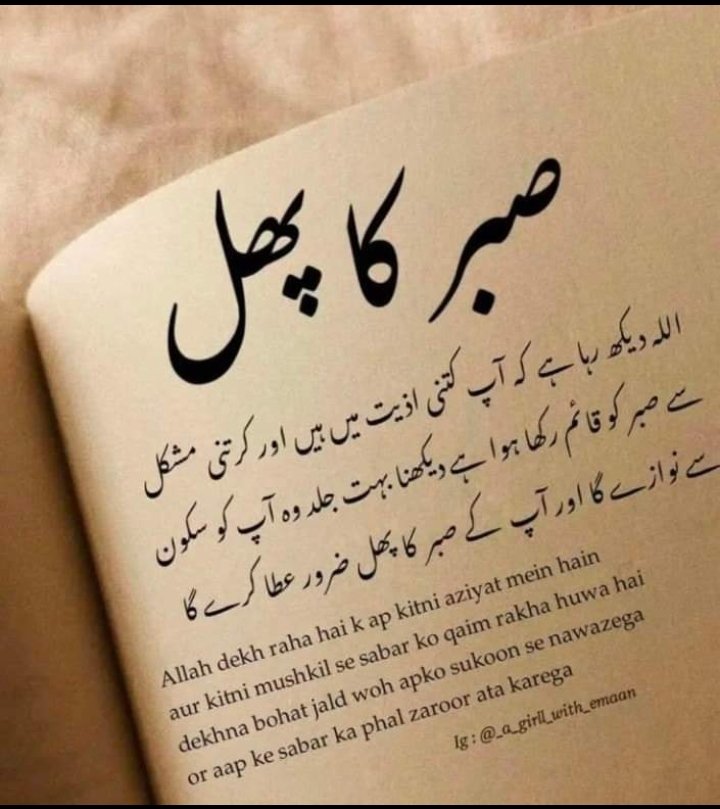 صبر کا پھل
اللہ دیکھ رہا ہے کہ آپ کتنی اذیت میں ہیں اور کرتنی مشکل
سے صبر کو قائم رکھا ہوا ہے دیکھنا بہت جلد وہ آپ کو سکون
سے نوازے گا اور آپ کے صبر کا پھل ضرور عطا کرے گا
Allah dekh raha hai k ap kitni aziyat mein hain
aur kitni mushkil se sabar ko qaim rakha huwa hai
dekhna bohat jald woh apko sukoon se nawazega
or aap ke sabar ka phal zaroor ata karega
Ig : @_a_girll_with_emaan